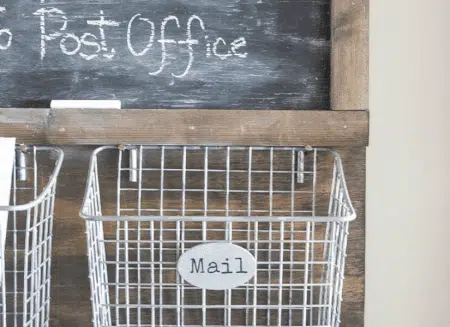 Post Office
Mail